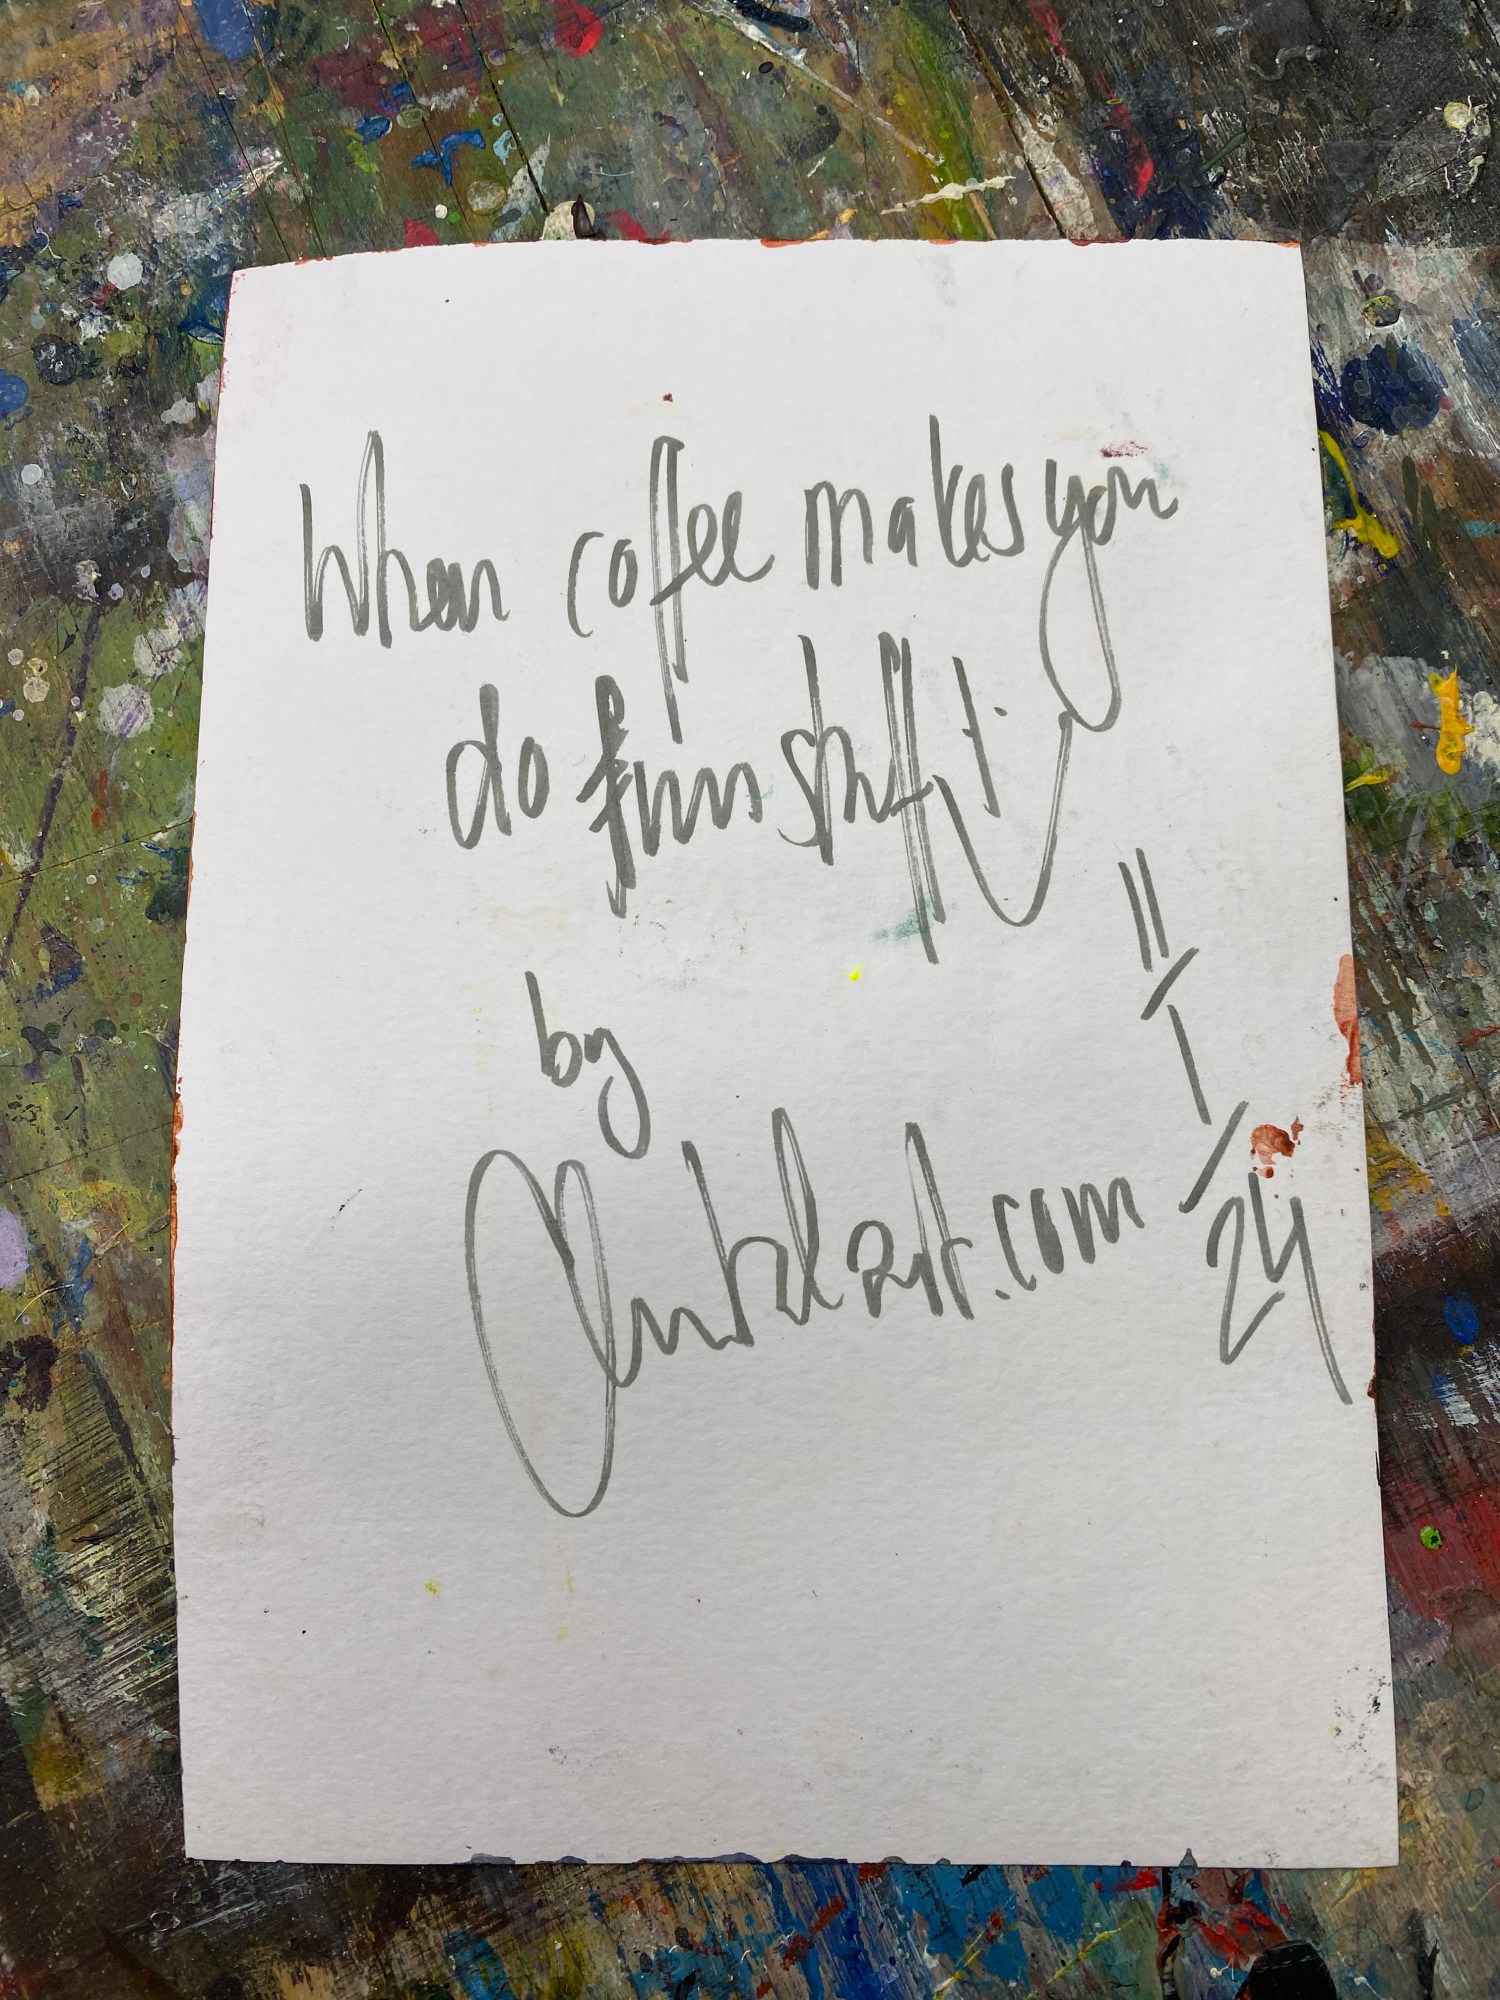 When coffee makes you
do fun stuff!
by
.com
11/1/24